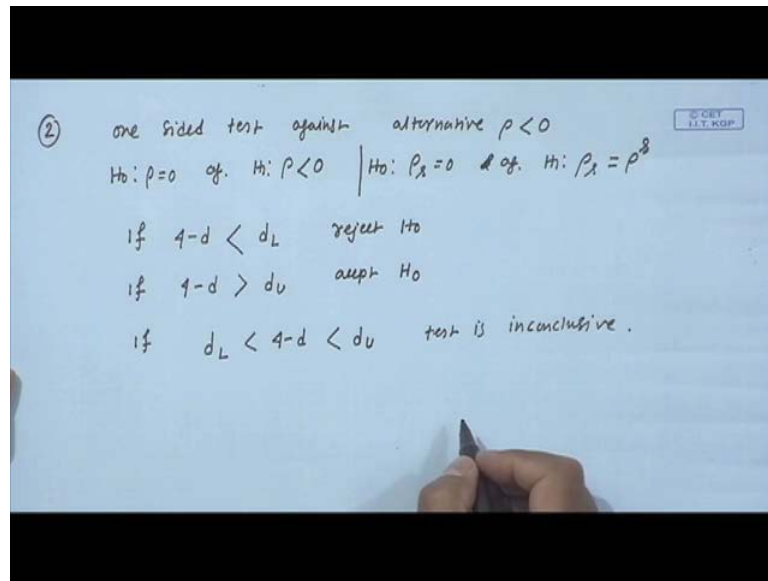 ② one sided test against alternative ρ<0
© CET
I.I.T. KGP
H₀: ρ=0 ag. H₁: ρ<0 | H₀: ρₛ=0 ag. H₁: ρₛ = ρˢ
If 4-d < d_L reject H₀
If 4-d > d_U accept H₀
If d_L < 4-d < d_U test is inconclusive.